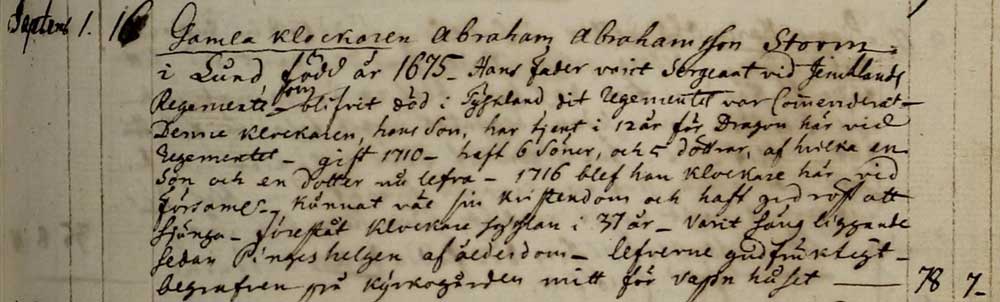 Septemb 1. 16 Gamla Klockaren Abraham Abrahamsson Storm.
i Lund, född år 1675 – Hans fader varit Sergeant vid Jemtlands
Regemente, som blifvit död i Tyskland dit Regementet var Commenderat –
Denne Klockaren, hans Son, har tjent i 12 år för Dragon här vid
Regementet – gift 1710 – haft 6 Söner, och 5 döttrar, af hvilka en
Son och en dotter nu lefva – 1716 blef han Klockare här vid
församl. – Kunnat väl sin Kristendom och haft god röst att
sjunga – förestått Klockare sysslan i 37 år – varit säng liggande
sedan Pingeshelgen af ålderdom – lefverne gudfruktigt –
begrafven på Kyrkogården mitt för vapn huset — 78 7 –